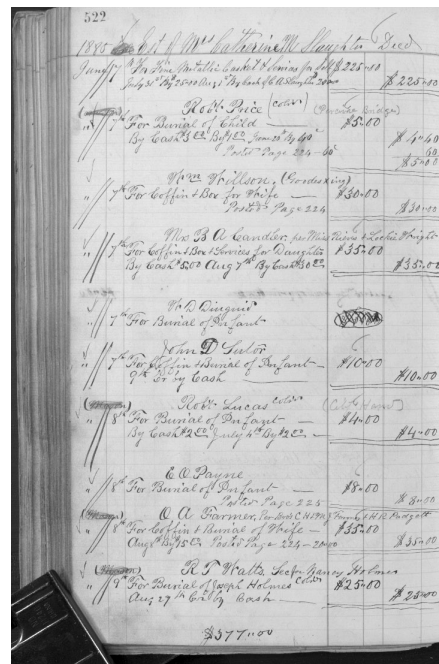 522
1895 Est of Mrs Catherine M Slaughter Decd
June 7th For Fine Metallic Casket & Services for Self $225.00
July 31st By 25.00 Aug 1st By Cash of C R Slaughter 200.00 $225.00
Robt Price (Color)
" 7th For Burial of Child $5.00
By Cash $4.00 June 20th By 40c $4.40
Posted Page 224 - 60c 60
$5.00
Wm Willson. (Goodes King)
" 7th For Coffin & Box for Wife — $30.00
Posted Page 224 $30.00
Mrs B A Candler. per Miss & Lockie Wright
" 7th For Coffin & Box & Services for Daughter $35.00
By Cash $5.00 Aug 7th By Cash $30.00 $35.00
W D Diuguid
" 7th For Burial of Infant
John D Sutor
" 7th For Coffin & Burial of Infant — $10.00
9th Cr by Cash $10.00
Robt Lucas Color
" 8th For Burial of Infant — $4.00
By Cash $2.00 July 4th By $2.00 $4.00
E O Payne
" 8th For Burial of Infant — $8.00
Posted Page 225 $8.00
O A Farmer, Per & H R Padgett
" 8th For Coffin & Burial of Wife — $35.00
Aug By 15.00 Posted Page 224 - 20.00 $35.00
R T Watts, Nancy Holmes
" 9th For Burial of Joseph Holmes Cold $25.00
Aug 27th Cr by Cash $25.00
$377.00